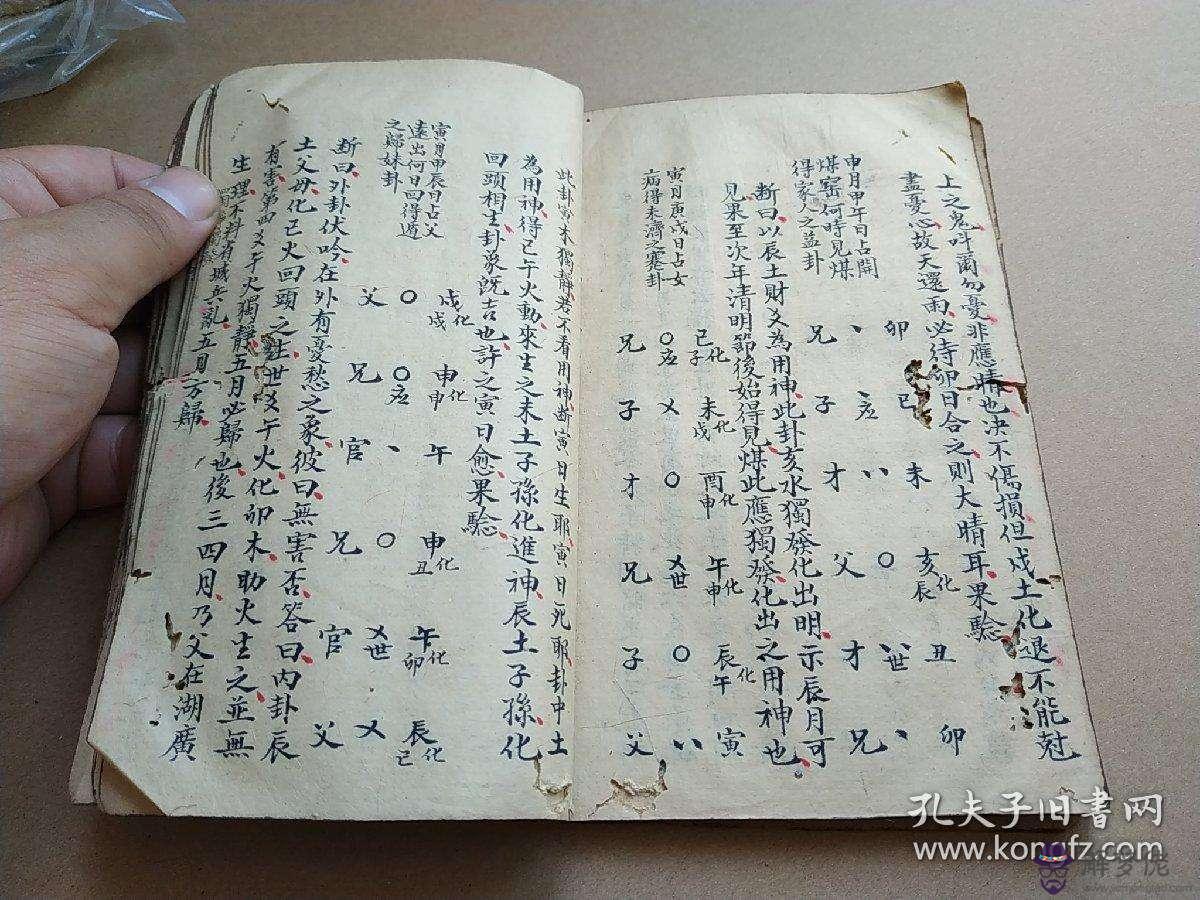 上之鬼吁爾勿憂非應晴也决不傷損但戌土化退不能尅
盡憂心故天還雨必待卯日合之則大晴耳果驗
申月甲午日占開
煤窑何時見煤
得家人之益卦
卯 巳 未 亥化辰 丑 卯
丶 丶应 丶丶 〇 丶丶世 丶
兄 子 才 父 才 兄
断曰以辰土財爻為用神此卦亥水獨發化出明示辰月可
見果至次年清明節後始得見煤此應獨發化出之用神也
寅月庚戌日占女
病得未濟之蹇卦
巳化子 未化戌 酉化申 午化申 辰化午 寅
〇应 乂 〇 乂世 〇 丶丶
兄 子 才 兄 子 父
此卦寅木獨静若不看用神断寅日生耶寅日死耶卦中土
為用神得巳午火動來生之未土子孫化進神辰土子孫化
回頭相生卦象既吉也許之寅日愈果驗
寅月甲辰日占父
遠出何日回得遁
之歸妹卦
戌化戌 申化申 午 申化丑 午化卯 辰化巳
〇 〇应 丶 〇 乂世 乂
父 兄 官 兄 官 父
断曰外卦伏吟在外有憂愁之象彼曰無害否答曰内卦辰
土父母化巳火回頭之生世爻午火化卯木助火生之並無
有害第四爻午火獨静五月必歸也後三四月乃父在湖廣
生理不料有城兵亂五月方歸
孔夫子旧书网
www.kongfz.com
解梦佬